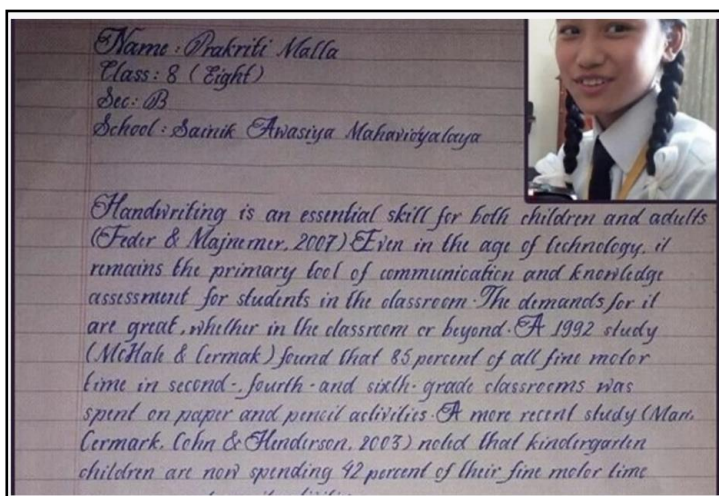 Name : Prakriti Malla
Class : 8 ( Eight )
Sec : B
School : Sainik Awasiya Mahavidyalaya
Handwriting is an essential skill for both children and adults
(Feder & Majnemer, 2007) Even in the age of technology, it
remains the primary tool of communication and knowledge
assessment for students in the classroom. The demands for it
are great, whether in the classroom or beyond. A 1992 study
(McHale & Cermak) found that 85 percent of all fine motor
time in second-, fourth- and sixth- grade classrooms was
spent on paper and pencil activities. A more recent study (Marr,
Cermark, Cohn & Henderson, 2003) noted that kindergarten
children are now spending 42 percent of their fine motor time